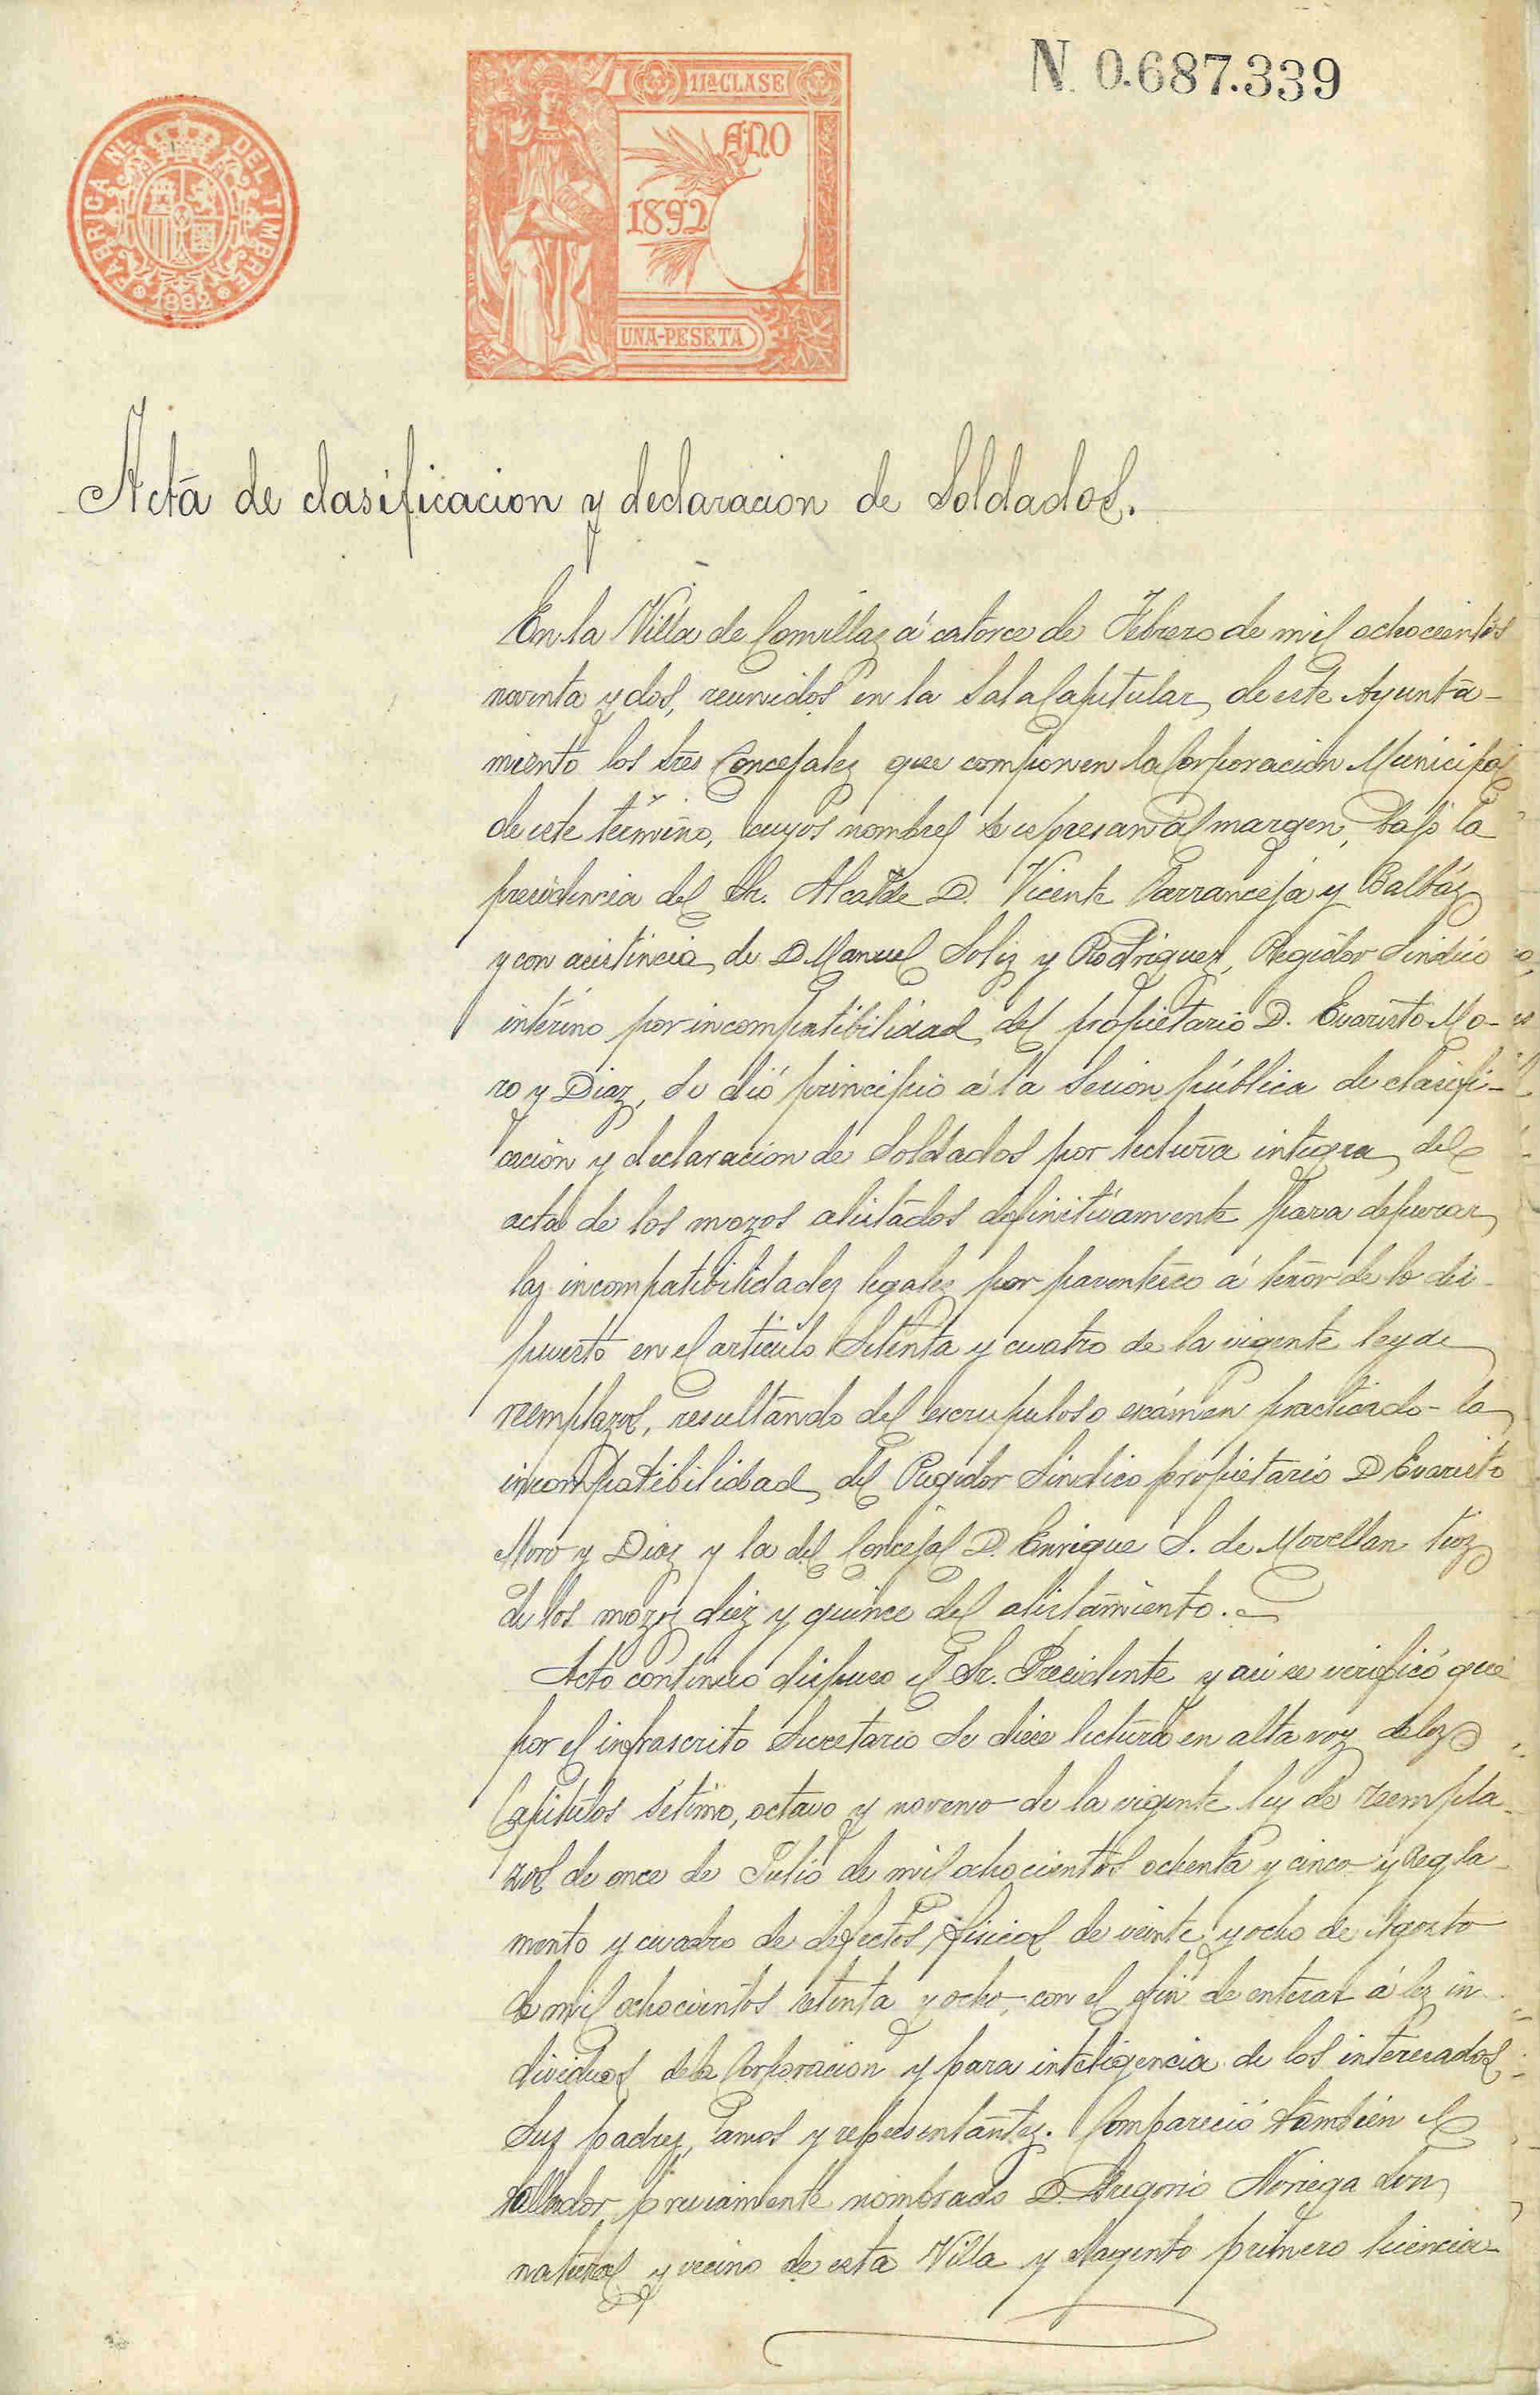 N. 0.687.339
11ª CLASE
FABRICA NL. DEL TIMBRE
1892
AÑO
1892
UNA-PESETA
Acta de clasificacion y declaracion de Soldados.
En la Villa de Comillas á catorce de Febrero de mil ochocientos
noventa y dos, reunidos en la Sala Capitular de este Ayunta-
miento los Sres Concejales que componen la Corporacion Municipal
de este término, cuyos nombres se espresan al margen, bajo la
presidencia del Sr. Alcalde D. Vicente Parranceja y Balbás
y con asistencia de D Manuel Solis y Rodriguez, Regidor Sindico
interino por incompatibilidad del propietario D. Evaristo Mo-
ro y Diaz, se dió principio á la Sesion pública de clasifi-
cación y declaracion de Soldados por lectura integra del
acta de los mozos alistados definitivamente para depurar
las incompatibilidades legales por parentesco á tenor de lo dis-
puesto en el articulo Setenta y cuatro de la vigente ley de
reemplazos, resultando del escrupuloso exámen practicado la
incompatibilidad del Regidor Sindico propietario D Evaristo
Moro y Diaz y la del Concejal D. Enrique S. de Movellan tios
de los mozos diez y quince del alistamiento.
Acto continuo dispuso el Sr. Presidente y asi se verificó que
por el infrascrito Secretario se diese lectura en alta voz de los
Capitulos sétimo, octavo y noveno de la vigente ley de reempla-
zos de once de Julio de mil ochocientos ochenta y cinco y Regla-
mento y cuadro de defectos fisicos de veinte y ocho de Agosto
de mil ochocientos setenta y ocho, con el fin de enterar á los in-
dividuos de la Corporacion y para inteligencia de los interesados,
Sus padres, amos y representantes. Compareció tambien el
tallador previamente nombrado D. Gregorio Noriega
natural y vecino de esta Villa y Sargento primero licencia-